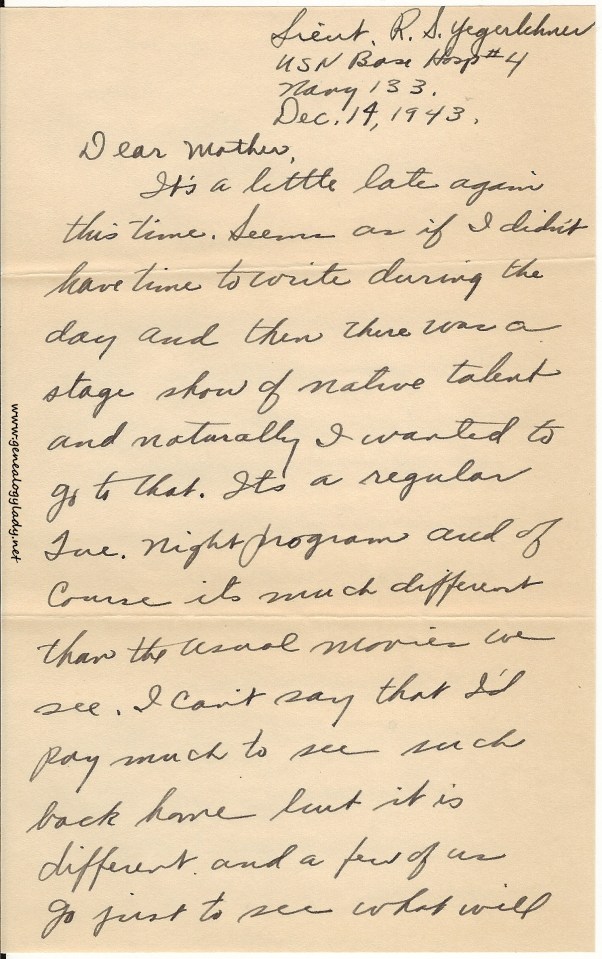 Lieut. R. S. Yegerlehner
USN Base Hosp #4
Navy 133.
Dec. 14, 1943.
Dear Mother,
It's a little late again
this time. Seems as if I didn't
have time to write during the
day and then there was a
stage show of native talent
and naturally I wanted to
go to that. Its a regular
Tue. Night program and of
Course its much different
than the usual movies we
see. I can't say that I'd
pay much to see such
back home but it is
different and a few of us
go just to see what will
www.genealogylady.net